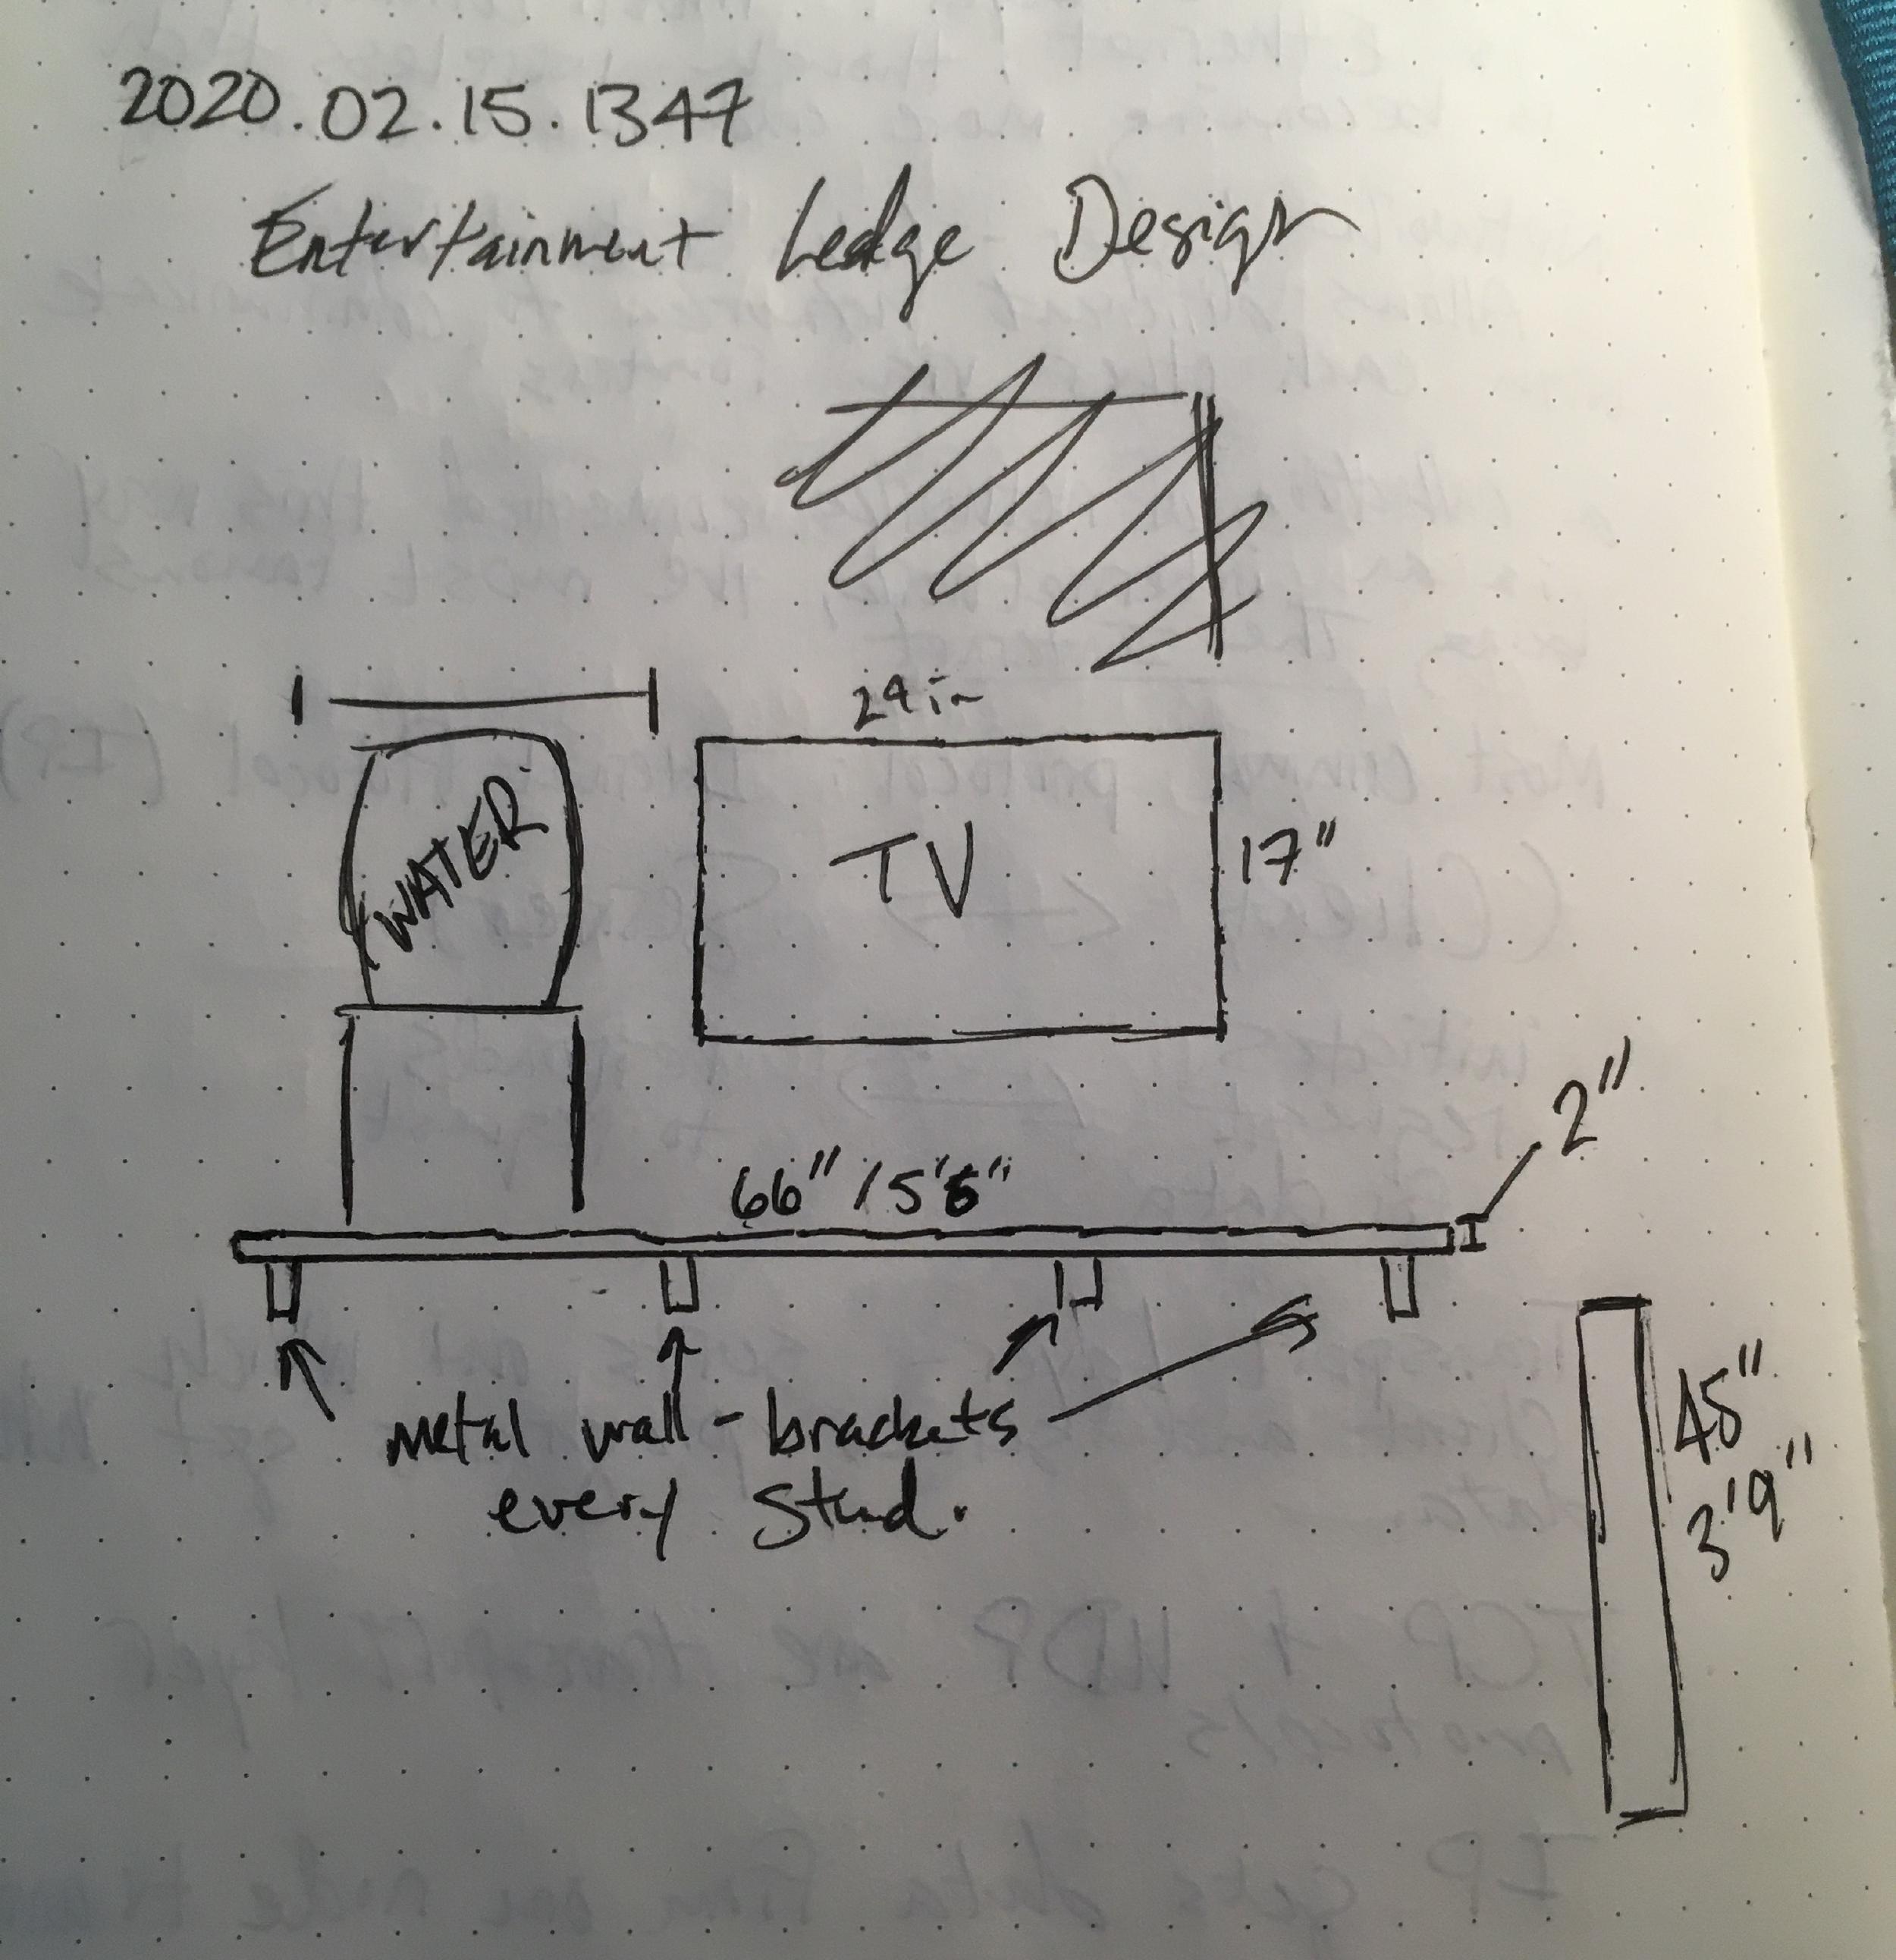 2020.02.15.1347
Entertainment Ledge Design
WATER
29 in
TV
17"
2"
66" / 5'6"
metal wall-brackets
every stud.
45"
3'9"